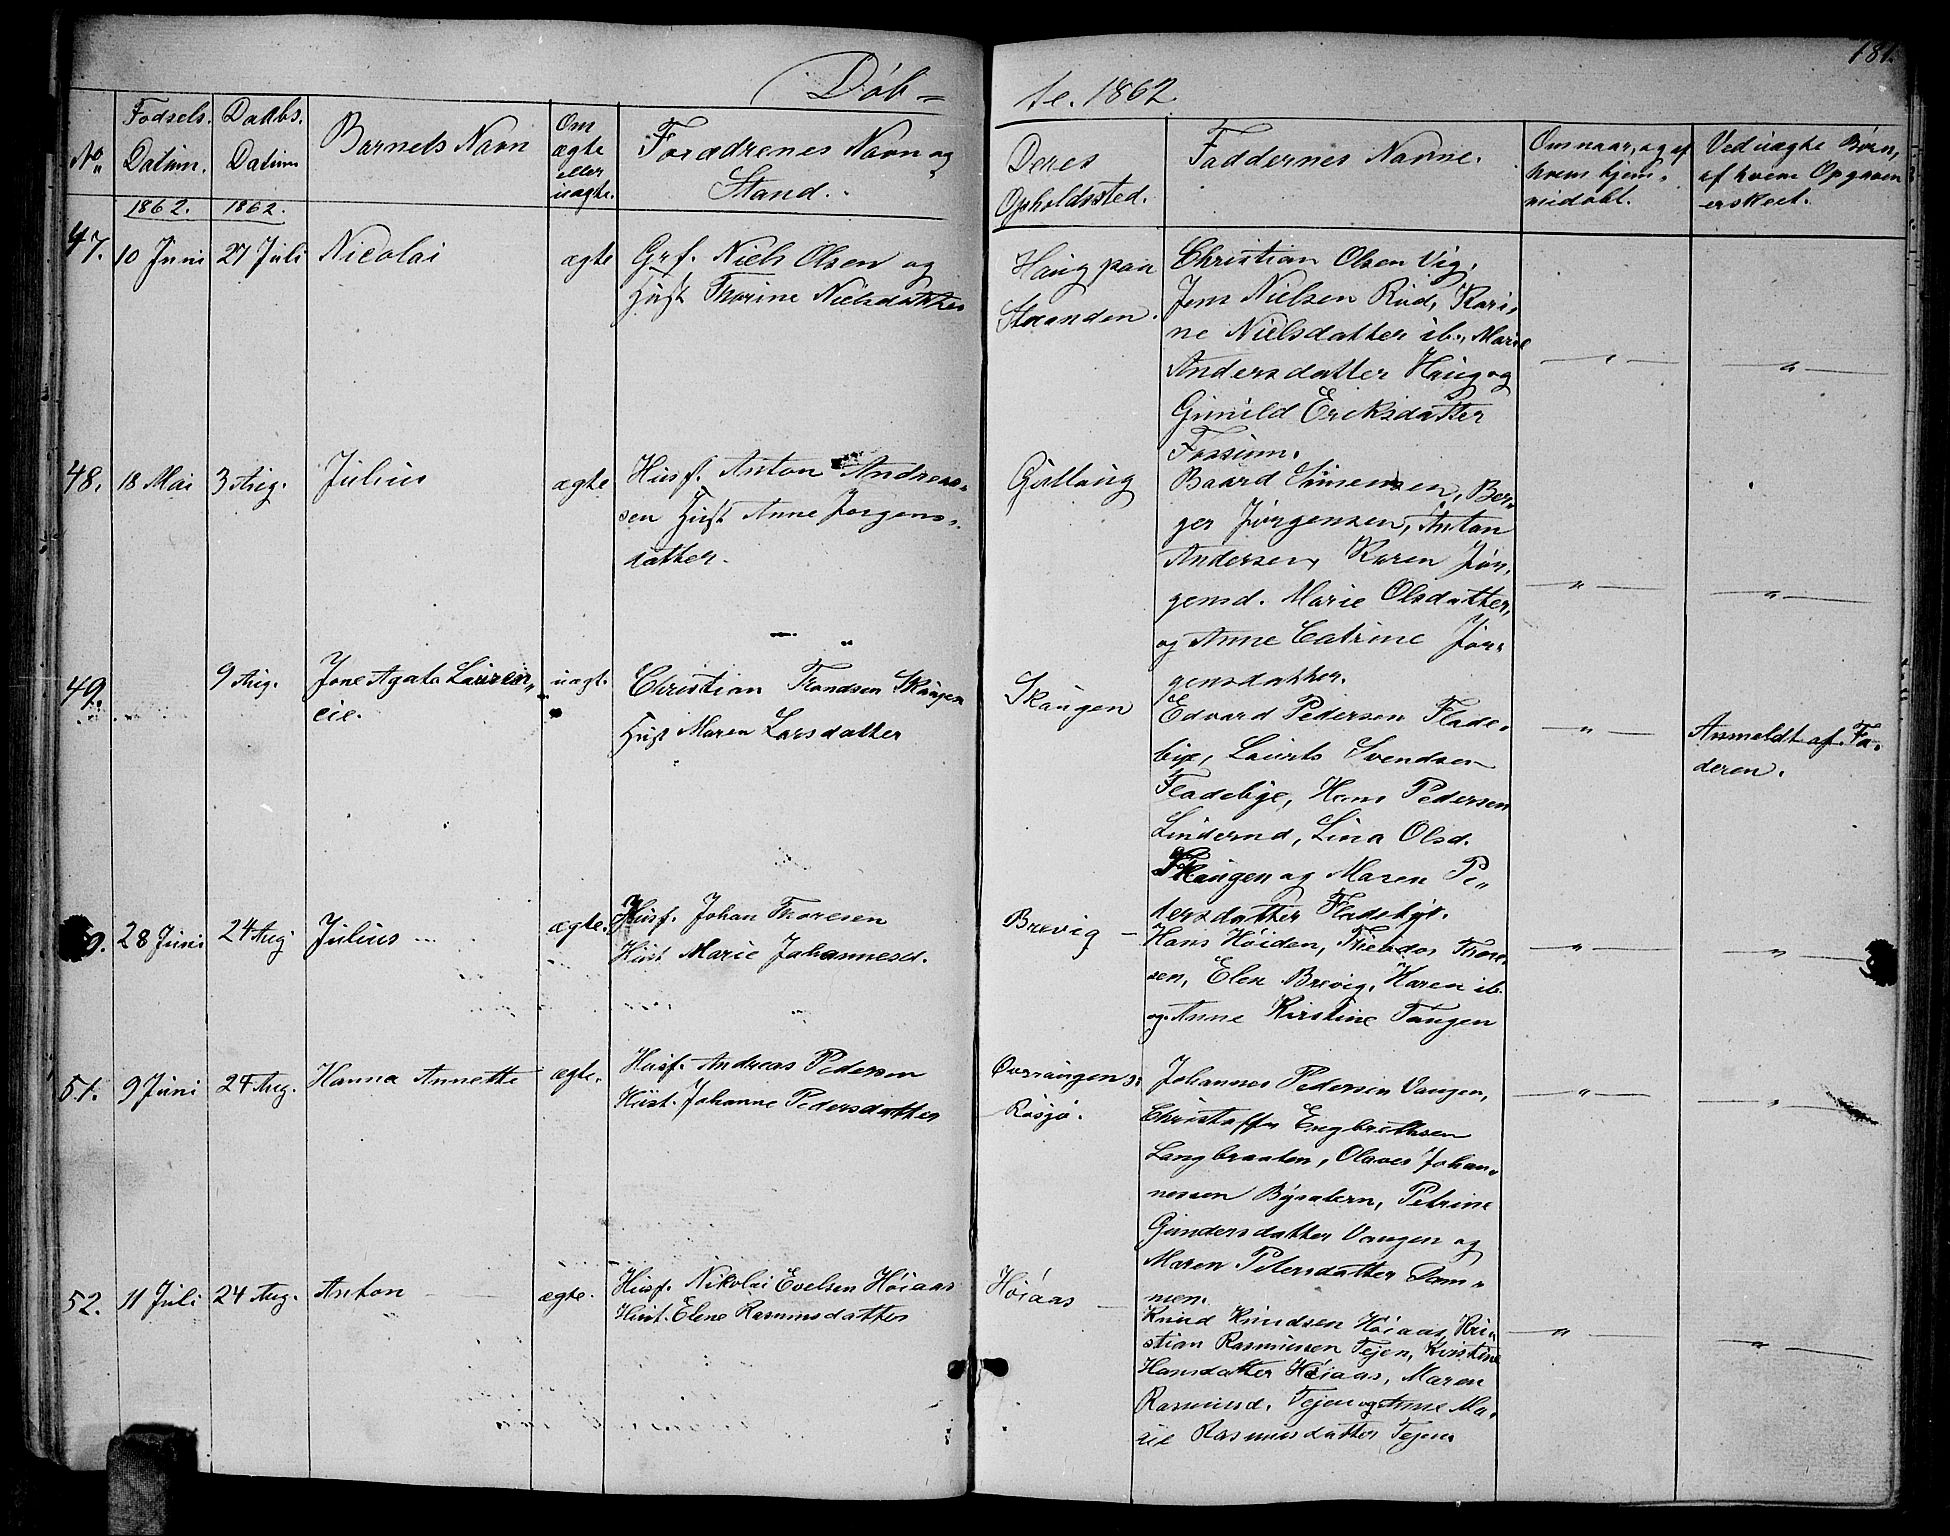 Døb-
te. 1862.
181.
No.
Fødsels.
Datum.
Daabs.
Datum
Barnets Navn
Om
ægte
eller
uægte.
Forædrenes Navn og
Stand.
Deres
Opholdssted.
Faddernes Navne.
Om naar, og af
hvem hjem-
medøbt.
Ved uægte Børn,
af hvem Opgaven
er skeet.
1862. 1862.
47. 10 Juni 27 Juli Nicolai ægte
Grf. Niels Olsen og
Hust Thorine Nielsdatter
Haug paa
Stranden.
Christian Olsen Vig,
Jens Nielsen Rud, Kari-
ne Nielsdatter ib., Marie
Andersdatter Haug og
Gunild Eriksdatter
Fossum.
48. 18 Mai 3 Aug. Julius ægte
Husf. Anton Andreas-
sen Hust Anne Jørgens-
datter.
Gullaug
Baard Simensen, Ber-
ger Jørgensen, Anton
Andersen, Karen Jør-
gensd. Marie Olsdatter,
og Anne Catrine Jør-
gensdatter.
49. 9 Aug. Jone Agate Lauren-
cie. uægt.
Christian Trondsen Skaugen
Hust Maren Larsdatter
Skaugen
Edvard Pedersen Flade-
bye, Laurits Svendsen
Fladebye, Hans Pedersen
Linderud, Lina Olsd.
Skaugen og Maren Pe-
tersdatter Fladebye.
Anmeldt af Fa-
deren.
50. 28 Juni 24 Aug Julius ægte.
Husf. Johan Thoresen
Hust. Marie Johannesd.
Brevig
Hans Høiden, Theodor Thore-
sen, Elen Brevig, Karen ib.
og Anne Kirstine Tangen
51. 9 Juni 24 Aug. Hanna Annette ægte.
Husf. Andreas Pedersen
Hust. Johanne Pedersdatter
Røsjø.
Johannes Pedersen Vangen,
Christoffer Engbrethsen
Langbraaten, Olaves Johan-
nessen Bysætern, Petrine
Gundersdatter Vangen og
Maren Petersdatter Dam-
men.
52. 11 Juli 24 Aug. Anton ægte.
Husf. Nikolai Evelsen Høiaas
Hust. Elene Rasmusdatter
Høiaas
Knud Knudsen Høiaas, Kri-
stian Rasmussen Tejen, Kirstine
Hansdatter Høiaas, Maren
Rasmusd. Tejen og Anne Ma-
rie Rasmusdatter Tejen.